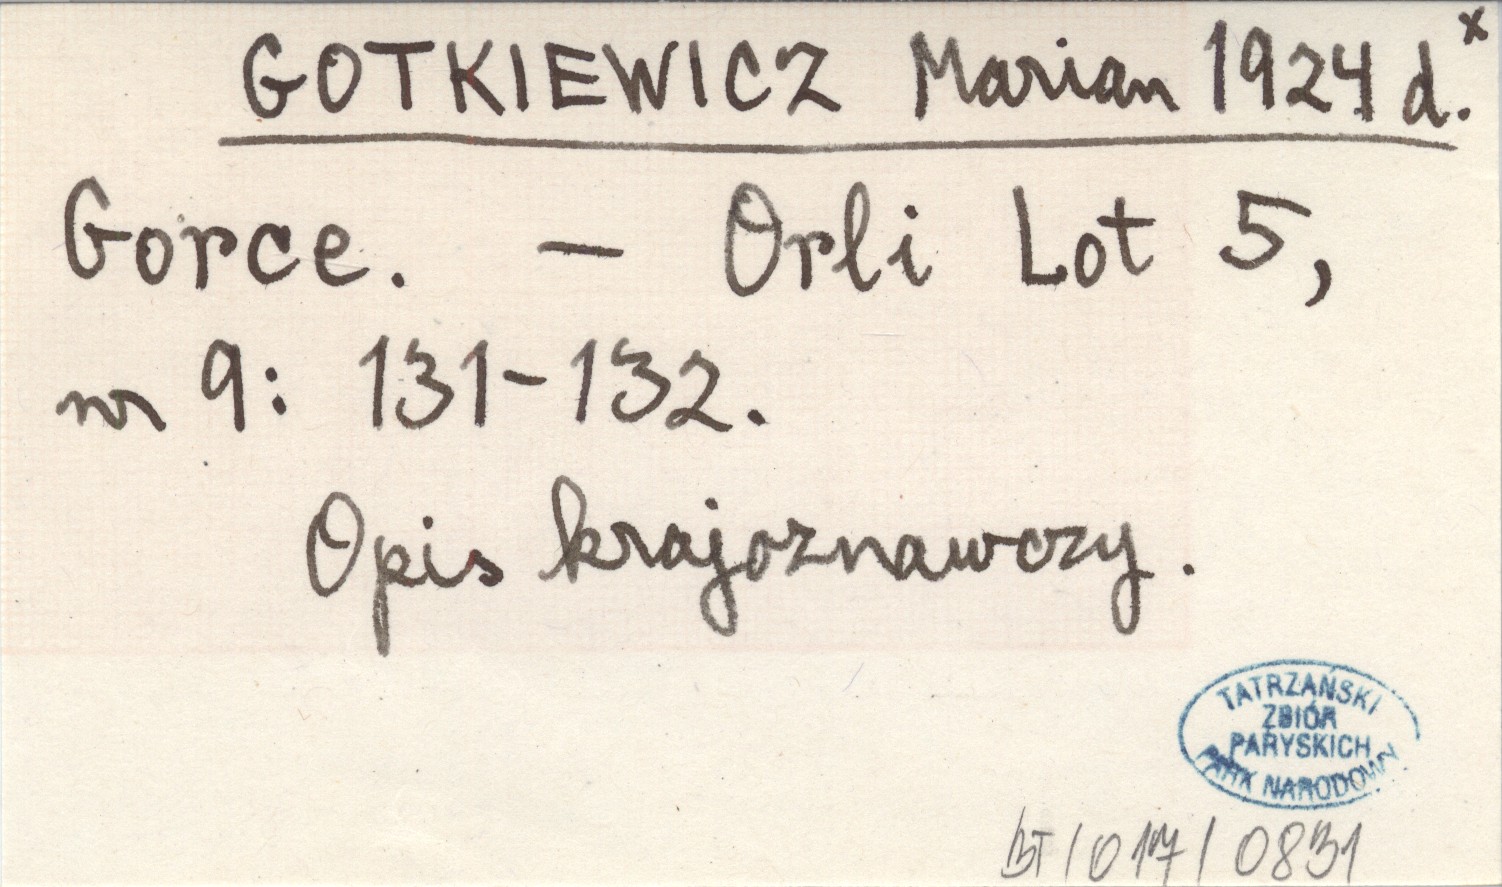 GOTKIEWICZ Marian 1924 d.x
Gorce. – Orli Lot 5,
nr 9: 131-132.
Opis krajoznawczy.
TATRZAŃSKI
ZBIÓR
PARYSKICH
PARK NARODOWY
BT/017/0831